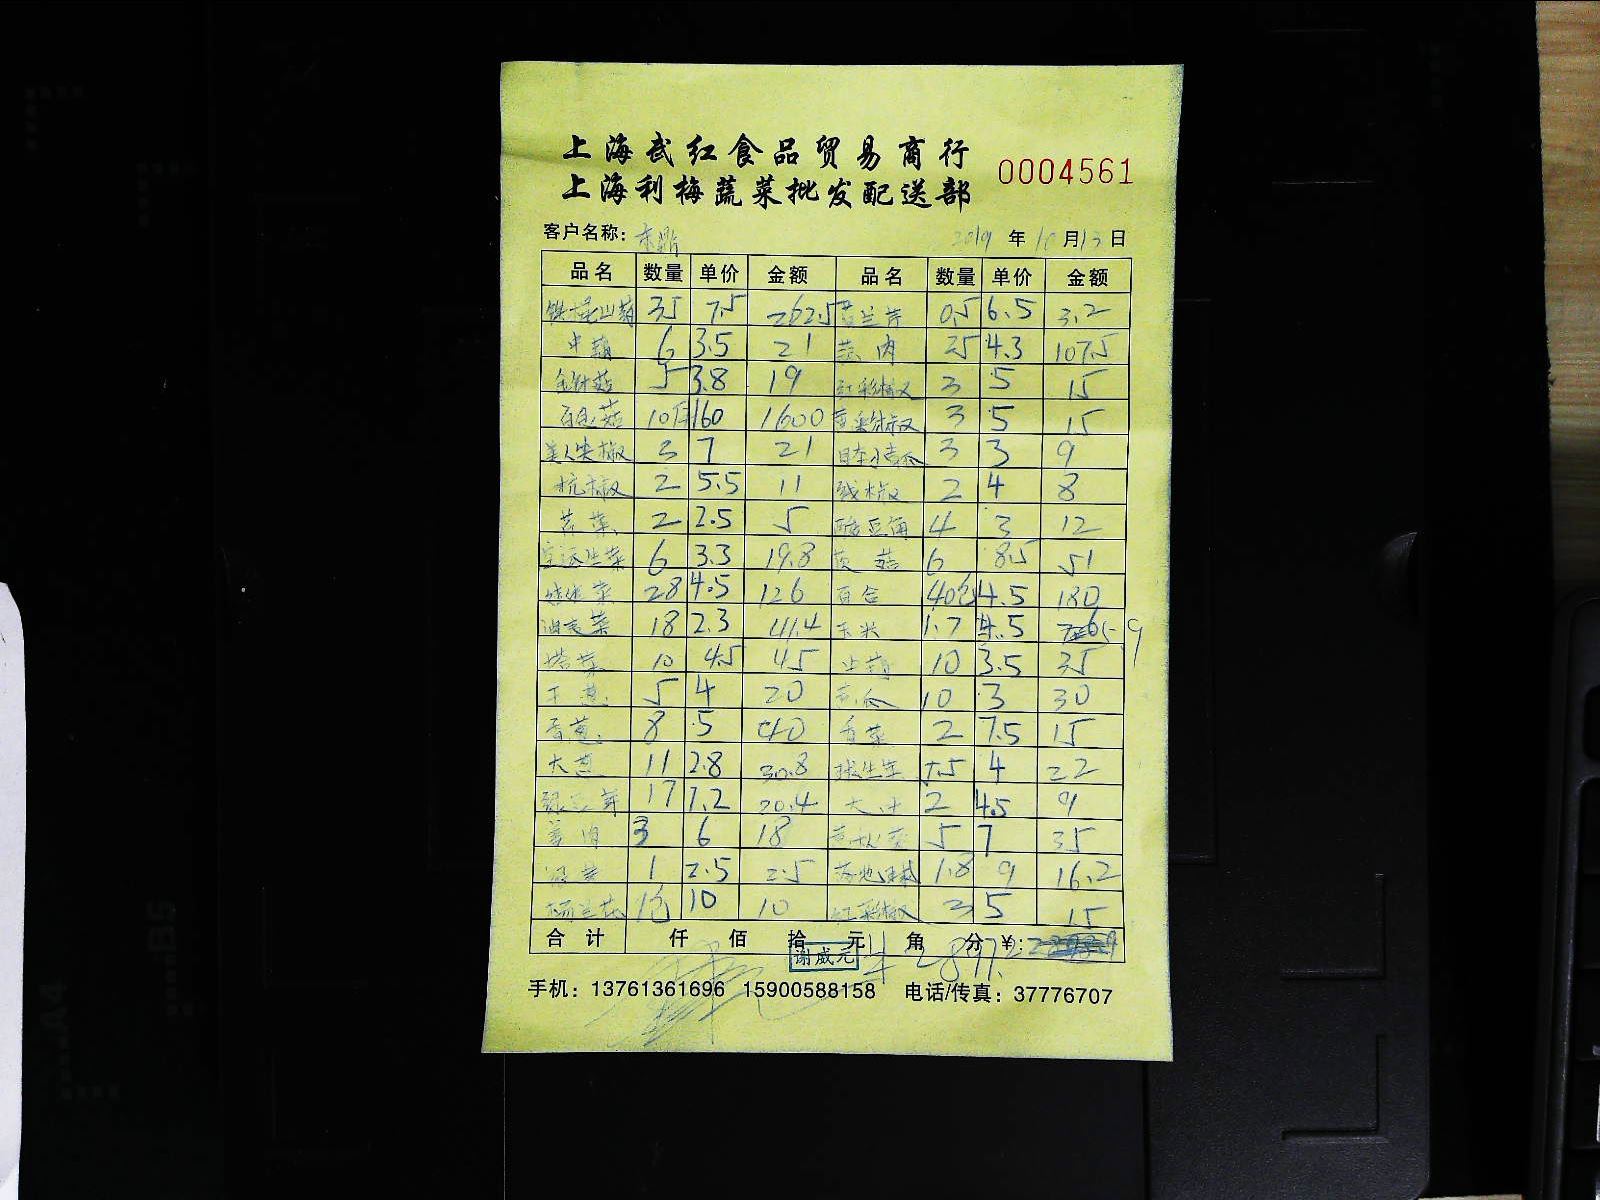 上海武红食品贸易商行
上海利梅蔬菜批发配送部
0004561
客户名称: 2019 年 10 月 13 日
品名 数量 单价 金额 品名 数量 单价 金额
铁棍山药 35 7.5 262.5 西兰芹 0.5 6.5 3.2
6 3.5 21 肉 25 4.3 107.5
金针菇 5 3.8 19 红彩椒 3 5 15
白玉菇 10 160 1600 黄彩椒 3 5 15
美人尖椒 3 7 21 日本小青瓜 3 3 9
杭椒 2 5.5 11 线椒 2 4 8
芹菜 2 2.5 5 酸豆角 4 3 12
生菜 6 3.3 19.8 茨菇 6 8.5 51
娃娃菜 28 4.5 126 百合 40包 4.5 180
油麦菜 18 2.3 41.4 玉米 1.7 4.5
塔菜 10 4.5 45 10 3.5 35
干葱 5 4 20 瓜 10 3 30
香葱 8 5 40 香菜 2 7.5 15
大葱 11 2.8 30.8 球生菜 5.5 4 22
绿豆芽 17 1.2 20.4 大叶 2 4.5 9
姜肉 3 6 18 5 7 35
1 2.5 2.5 1.8 9 16.2
1包 10 10 红彩椒 3 5 15
合计 仟 佰 拾 元 角 分 ¥:
谢威元
2897.2
手机: 13761361696 15900588158 电话/传真: 37776707